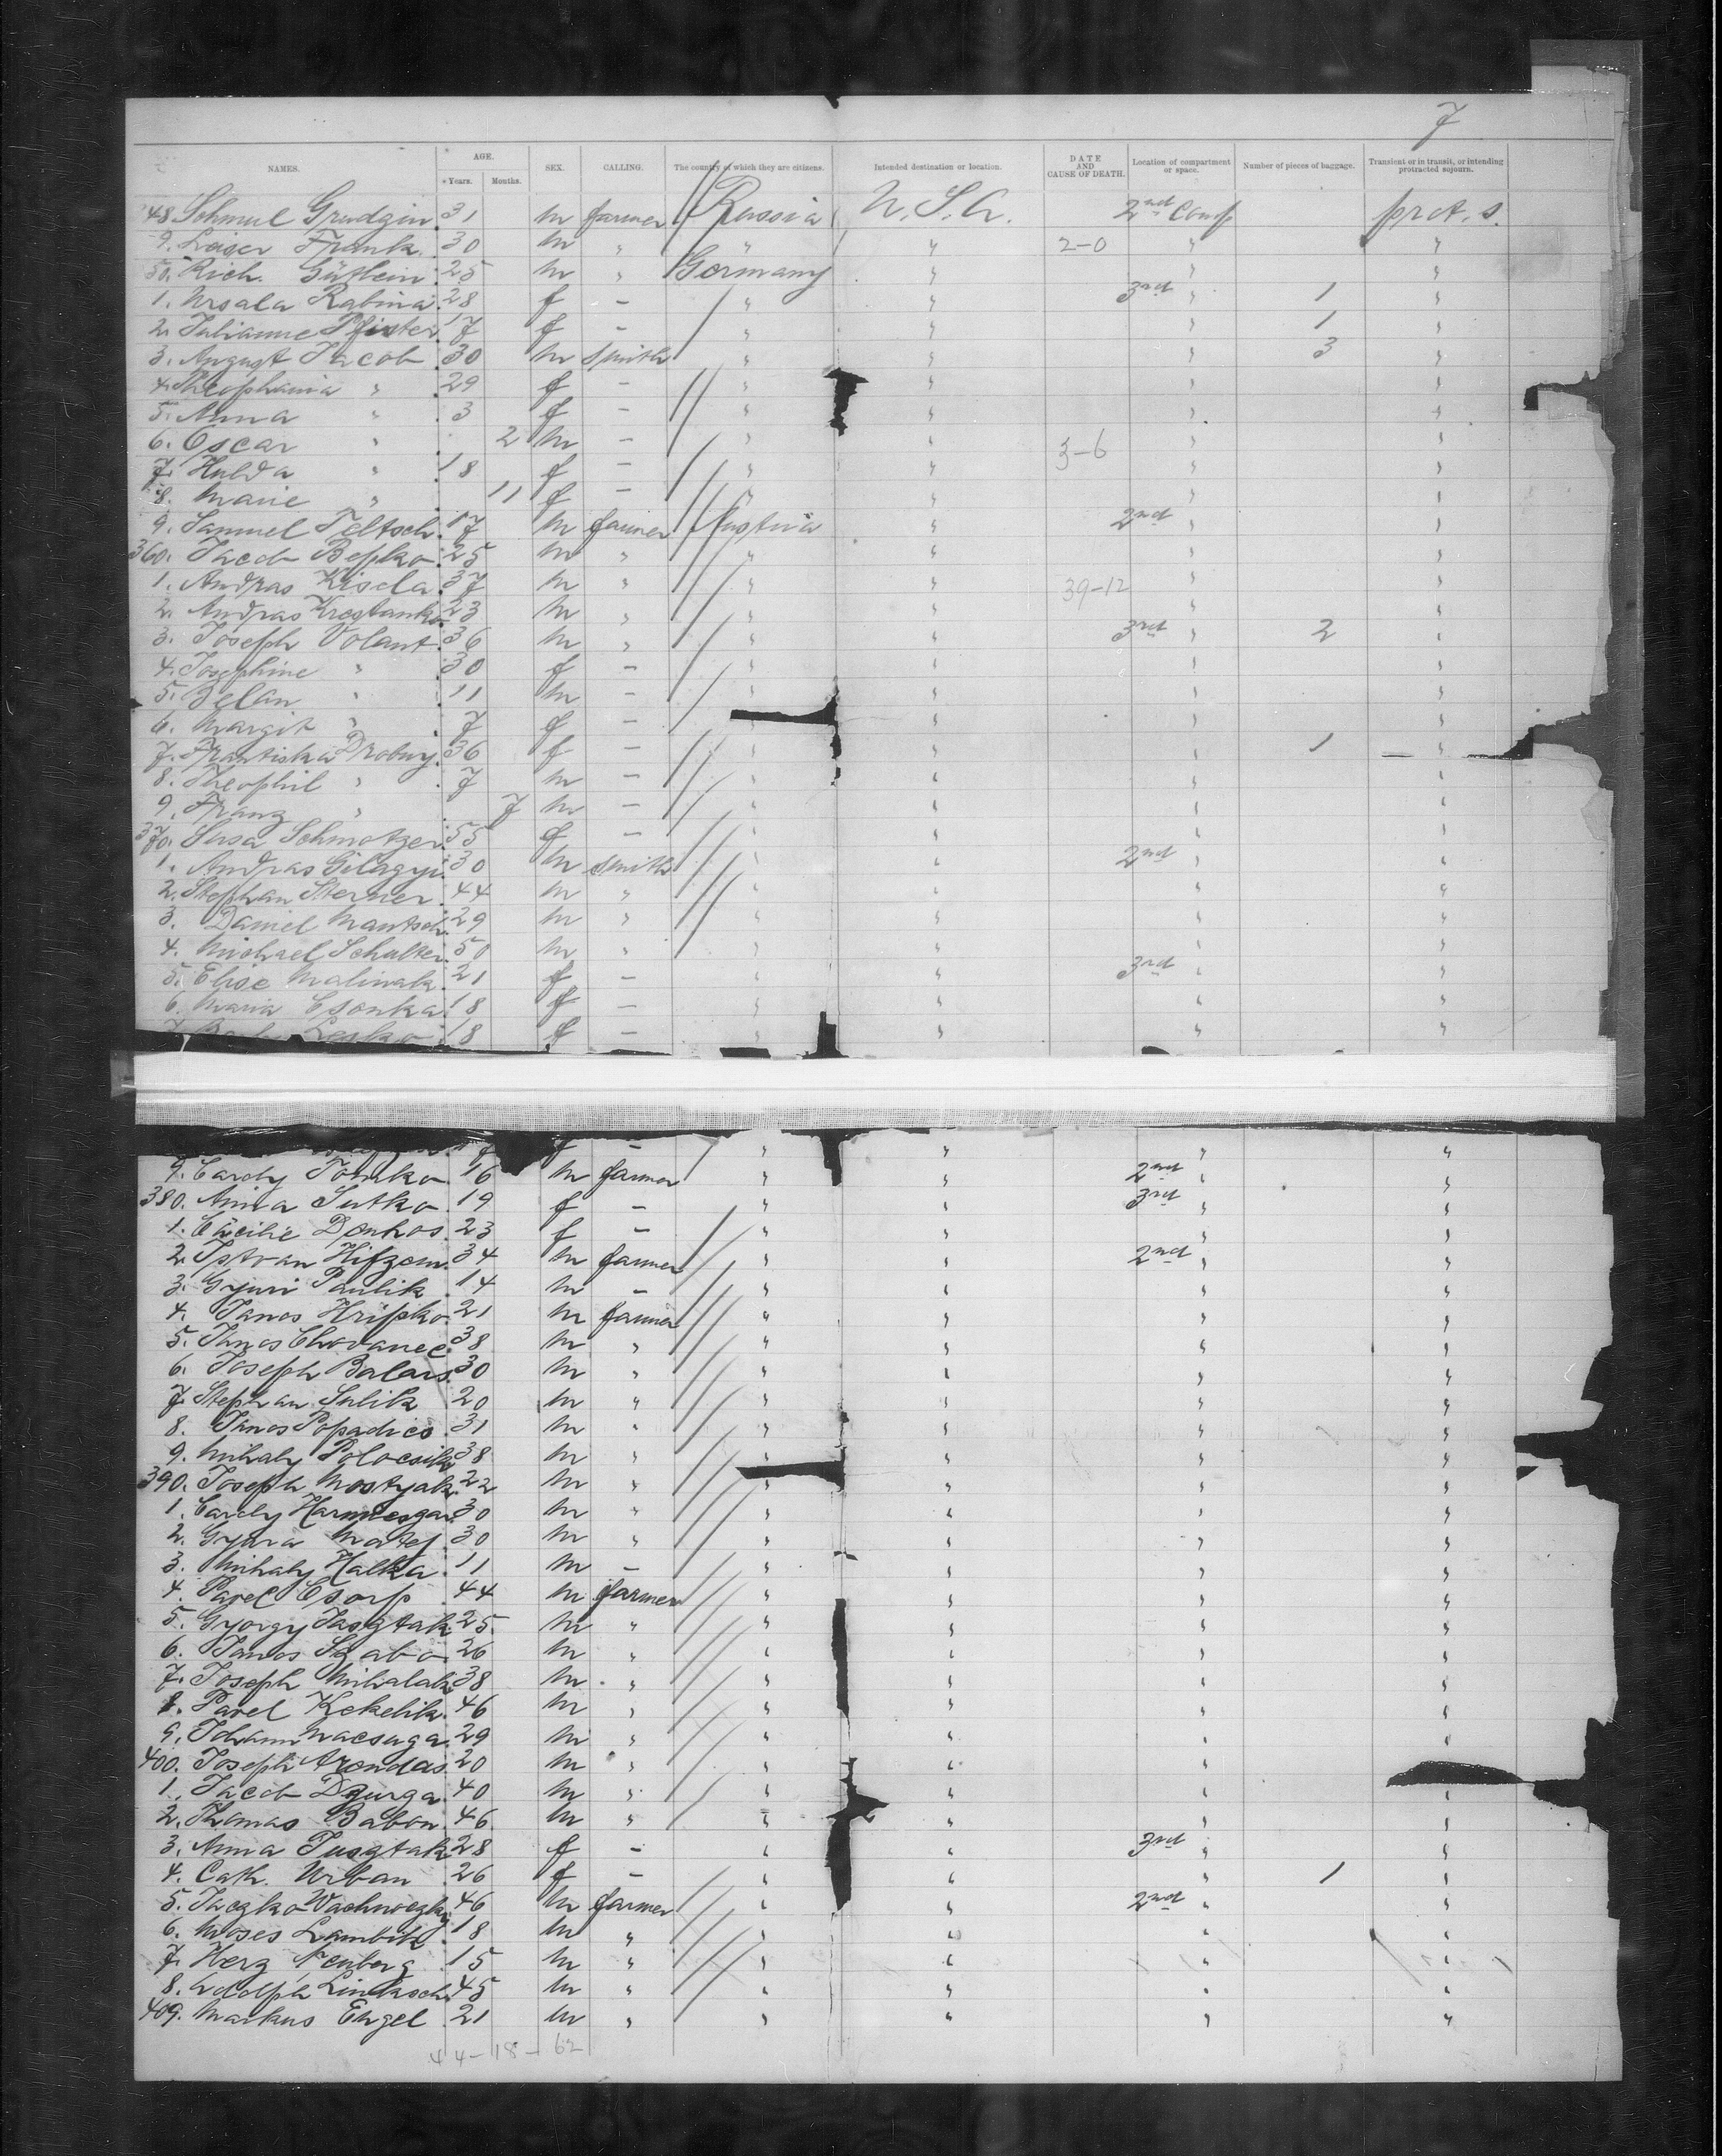 7
NAMES. AGE. Years. Months. SEX. CALLING. The country of which they are citizens. Intended destination or location. DATE AND CAUSE OF DEATH. Location of compartment or space. Number of pieces of baggage. Transient or in transit, or intending protracted sojourn.
48. Schmul Grudgin 31 m farmer Russia U.S.A. 2nd Comp prot. s.
9. Leiser Frank 30 m " " " 2-0 " "
50. Rich. 25 m " Germany " " "
1. Ursala Rabina 28 f - " " 3rd " 1 "
2. Julianne Pfister 17 f - " " " 1 "
3. August Jacob 30 m smith " " " 3 "
4. Theophania " 29 f - " " " "
5. Anna " 3 f - " " " "
6. Oscar " 2 m - " " 3-6 " "
7. Hulda " 18 f - " " " "
8. Marie " 11 f - " " " "
9. Samuel Teltsch 17 m farmer Austria " 2nd " "
360. Jacob Besko 25 m " " " " "
1. Andras Kisela 37 m " " " 39-12 " "
2. Andras 23 m " " " " "
3. Joseph Volant 36 m " " " 3rd " 2 "
4. Josephine " 30 f - " " " "
5. Belan " 11 m - " " " "
6. Margit " 7 f - " " " "
7. Frantiska Drobny 36 f - " " " 1 "
8. Theophil " 7 m - " " " "
9. Franz " 7 m - " " " "
370. Susa Schmotzer 55 f - " " " "
1. Andras Gilagyi 30 m smith " " 2nd " "
2. Stephan Sterner 44 m " " " " "
3. Daniel Mantsch 29 m " " " " "
4. Michael Schulter 50 m " " " " "
5. Elise Malinak 21 f - " " 3rd " "
6. Maria Csonka 18 f - " " " "
Lesko 18 f - " " " "
f - " " " "
9. Caroly Tomko 16 m farmer " " 2nd " "
380. Anna Sutko 19 f - " " 3rd " "
1. Cäcilie Donkos 23 f - " " " "
2. Istvan 34 m farmer " " 2nd " "
3. Gyuri Paulik 14 m - " " " "
4. Janos Hrisko 21 m farmer " " " "
5. Janos Chovanec 38 m " " " " "
6. Joseph Balars 30 m " " " " "
7. Stephan Sulik 20 m " " " " "
8. Janos Popadics 31 m " " " " "
9. Mihaly Polocsik 38 m " " " " "
390. Joseph Mostyak 22 m " " " " "
1. Caroly 30 m " " " " "
2. Gyura Matej 30 m " " " " "
3. Mihaly Halka 11 m - " " " "
4. Pavel Csorp 44 m farmer " " " "
5. Gyorgy Jasztak 25 m " " " " "
6. Janos Szabo 26 m " " " " "
7. Joseph Mihalak 38 m " " " " "
8. Pavel Kekelik 46 m " " " " "
9. Johann Macsuga 29 m " " " " "
400. Joseph Arendas 20 m " " " " "
1. Jacob Dzurga 40 m " " " " "
2. Thomas Babon 46 m " " " " "
3. Anna Jusztak 28 f - " " 3rd " "
4. Cath. Urban 26 f - " " " 1 "
5. 46 m farmer " " 2nd " "
6. Moses Lambik 18 m " " " " "
7. Herz Neuberg 15 m " " " " "
8. Adolph Linksch 45 m " " " " "
409. Markus Engel 21 m " " " " "
44-18-62